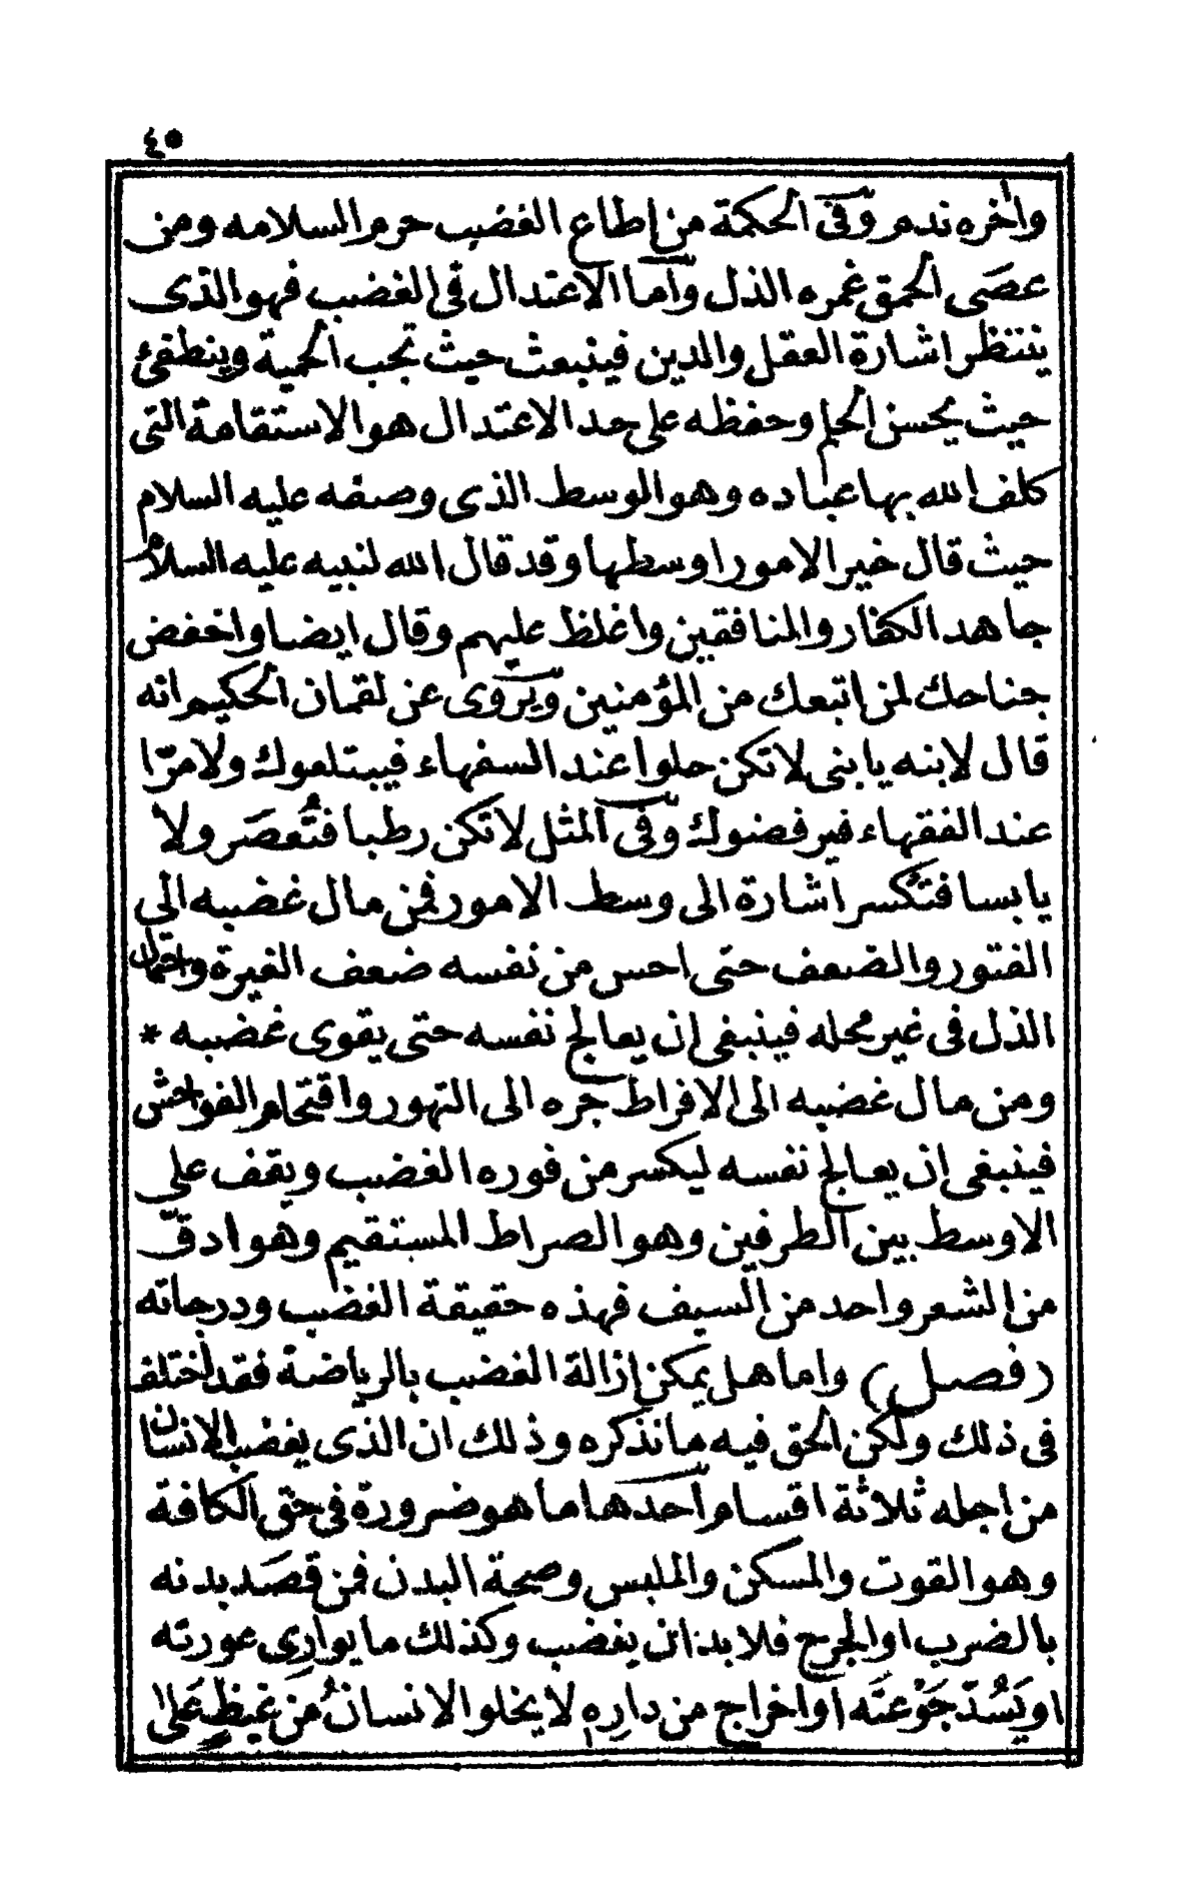 ٤٥
واخره ندم وفى الحكمة من اطاع الغضب حرم السلامه ومن
عصَى الحمق غمره الذل وأما الاعتدال فى الغضب فهو الذى
ينتظر اشارة العقل والدين فينبعث حيث تجب الحمية وينطفئ
حيث يحسن الحلم وحفظه على حد الاعتدال هو الاستقامة التى
كلف الله بها عباده وهو الوسط الذى وصفه عليه السلام
حيث قال خير الامور اوسطها وقد قال الله لنبيه عليه السلام
جاهد الكفار والمنافقين واغلظ عليهم وقال ايضا واخفض
جناحك لمن اتبعك من المؤمنين ويروى عن لقمان الحكيم انه
قال لابنه يا بنى لا تكن حلوا عند السفهاء فيبتلعوك ولا مرّا
عند الفقهاء فيرفضوك وفى المثل لا تكن رطبا فتُعصَر ولا
يابسا فتكسر اشارة الى وسط الامور فمن مال غضبه الى
الفتور والضعف حتى احس من نفسه ضعف الغيرة واحتمال
الذل فى غير محله فينبغى ان يعالج نفسه حتى يقوى غضبه *
ومن مال غضبه الى الافراط جره الى التهور واقتحام الفواحش
فينبغى ان يعالج نفسه ليكسر من فوره الغضب ويقف على
الاوسط بين الطرفين وهو الصراط المستقيم وهو ادقّ
من الشعر واحد من السيف فهذه حقيقة الغضب ودرجاته
(فصل) واما هل يمكن ازالة الغضب بالرياضة فقد اختلف
فى ذلك ولكن الحق فيه ما نذكره وذلك ان الذى يغضب الانسان
من اجله ثلاثة اقسام احدها ما هو ضرورة فى حق الكافة
وهو القوت والمسكن والملبس وصحة البدن فمن قصَد بدنه
بالضرب او الجرح فلا بد ان يغضب وكذلك ما يوارِى عورته
او يَسُدّ جَوْعتَه أو اخراج من دارِهِ لا يخلو الانسانُ من غيظٍ عَلى